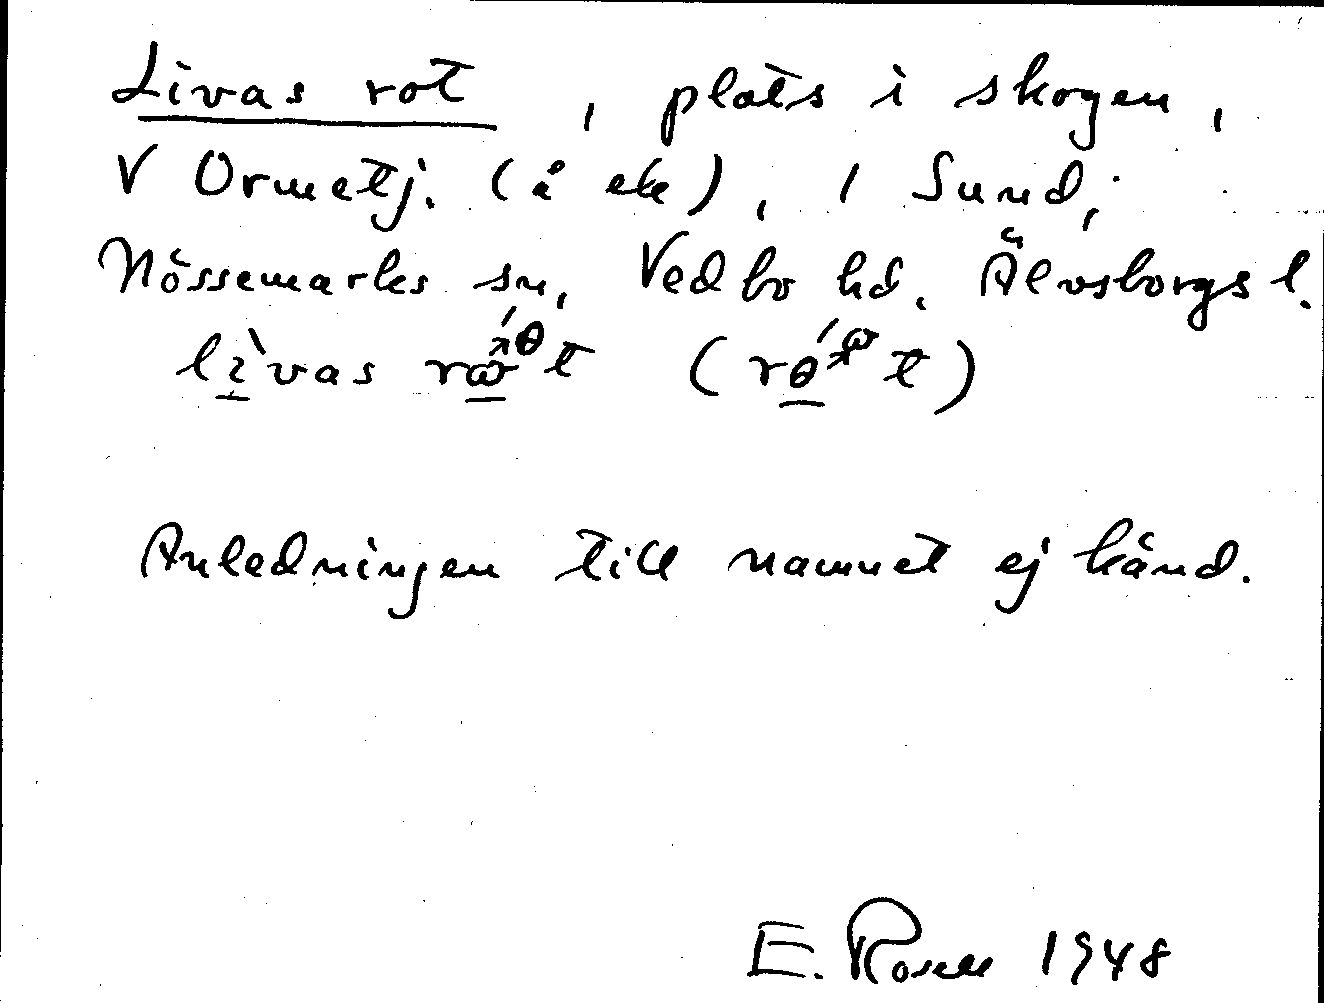 Livas rot, plats i skogen,
V Ormetj. (å ek), 1 Sund,
Nössemarks sn, Vedbo hd. Älvsborgs l.
Anledningen till namnet ej känd.
E. Rosell 1948